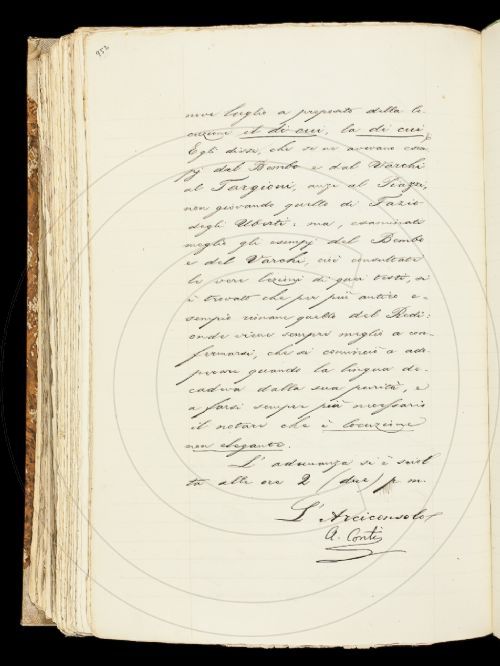 952
nove luglio a proposito della lo
cuzione il di cui, la di cui.
Egli disse, che se ne avevano esem
pj dal Bembo e dal Varchi
al Targioni, anzi al Piazzi,
non giovando quello di Fazio
degli Uberti: ma, esaminati
meglio gli esempj del Bembo
e del Varchi, cioè consultate
le vere lezioni di quei testi, si
è trovato che per più antico e-
sempio rimane quello del Redi:
onde viene sempre meglio a con-
fermarsi, che si cominciò a ado-
perare quando la lingua de-
cadeva dalla sua purità, e
a farsi sempre più necessario
il notare che è locuzione
non elegante.
L' adunanza si è sciol
ta alle ore 2 (due) p. m.
L' Arciconsolo
A. Conti